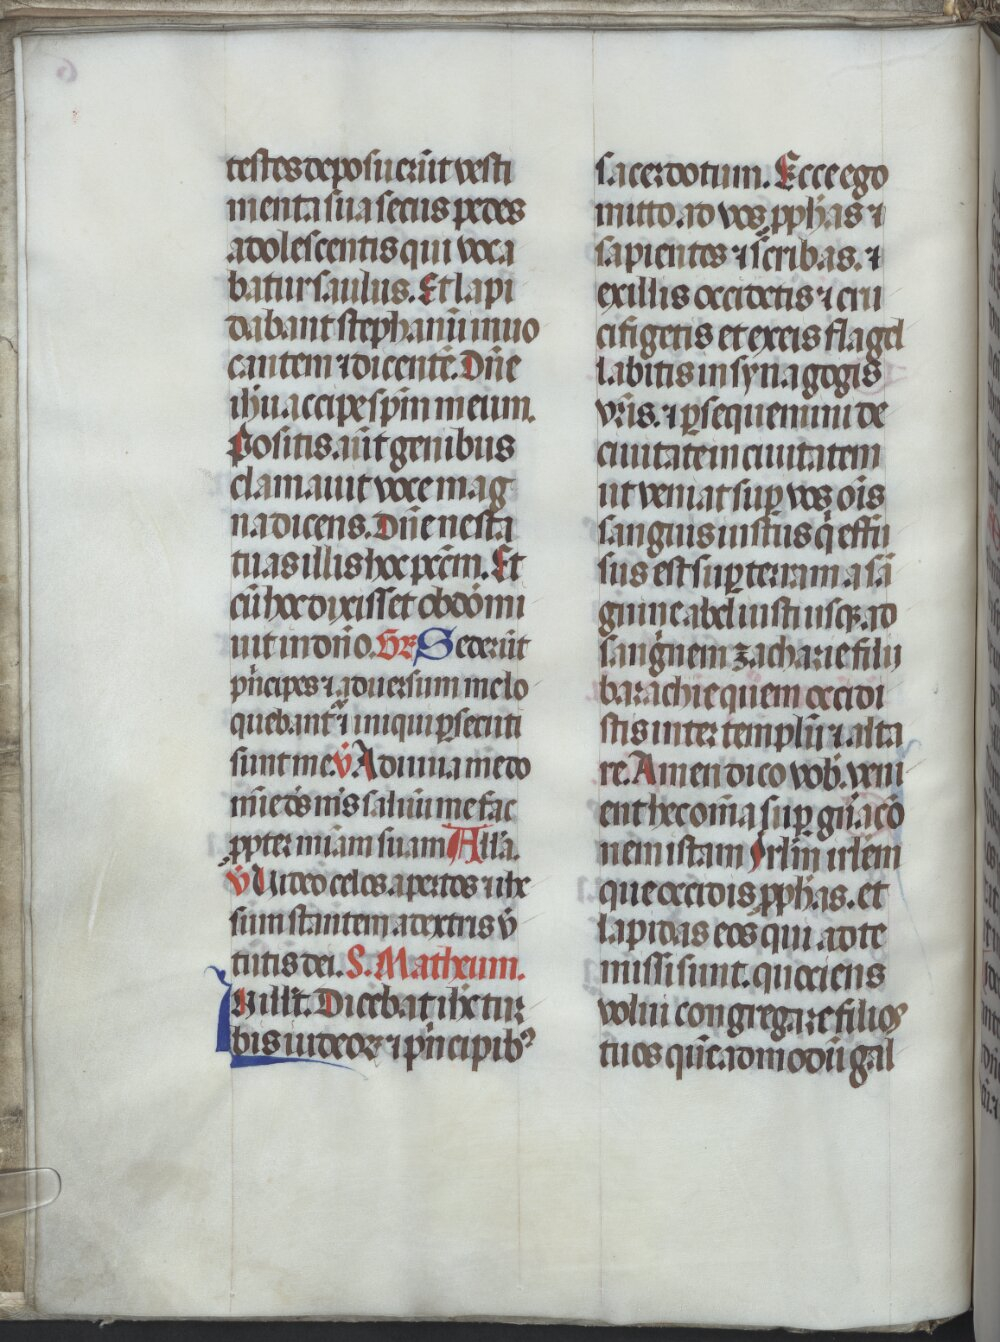 testes deposuerūt vesti
menta sua secus pedes
adolescentis qui voca
batur saulus. Et lapi
dabant stephanū inuo
cantem ⁊ dicentē. Dn̄e
ihū accipe sp̄m meum.
Positis aūt genibus
clamauit voce mag
na dicens. Dn̄e ne sta
tuas illis hoc pctm̄. Et
cū hoc dixisset obdōmi
uit in dn̄o. GR Sederūt
pͥncipes ⁊ aduersum me lo
quebantͬ ⁊ iniqui ꝑsecuti
sunt me. V̄ Adiuua me do
mīe ds̄ mīs saluū me fac
ꝓpter mīam suam All̄a.
V̄ Video celos apertos ⁊ ihe
sum stantem a dextris v̄
tutis dei. S. Matheum.
In ill̄t. Dicebat ihc̄ tur
bis iudeoꝝ ⁊ pͥncipibꝰ
sacerdotum. Ecce ego
mitto ad vos ꝓph̄as ⁊
sapientes ⁊ scͥribas. ⁊
ex illis occidetis ⁊ cru
cifigetis et ex eis flagel
labitis in synagogis
vr̄is. ⁊ ꝑsequemini de
ciuitate in ciuitatem
ut veniat suꝑ vos oīs
sanguis iustus qͥ effu
sus est suꝑ terram a sā
guine abel iusti usqꝫ ad
sangͥnem zacharie filii
barachie quem occidi
stis inter templū ⁊ alta
re. Amen dico vob̄. veni
ent hec om̄a suꝑ gn̄acō
nem istam Irlm̄ irlem
que occidis ꝓph̄as. et
lapidas eos qui ad te
missi sunt. quociens
volui congregare filios
tuos quēadmodū gal